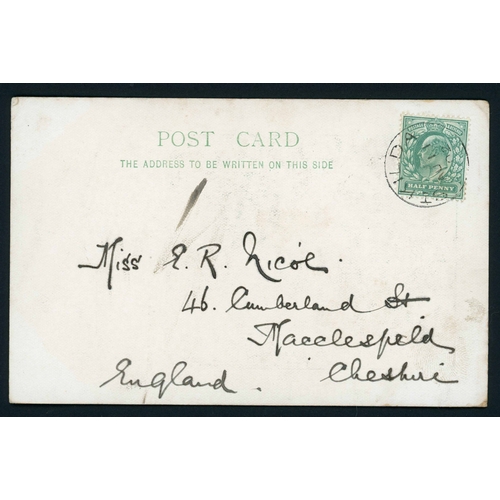 POST CARD
THE ADDRESS TO BE WRITTEN ON THIS SIDE
HALF PENNY
LDA
Miss E. R. Nicol.
46. Cumberland St
Macclesfield
Cheshire
England.